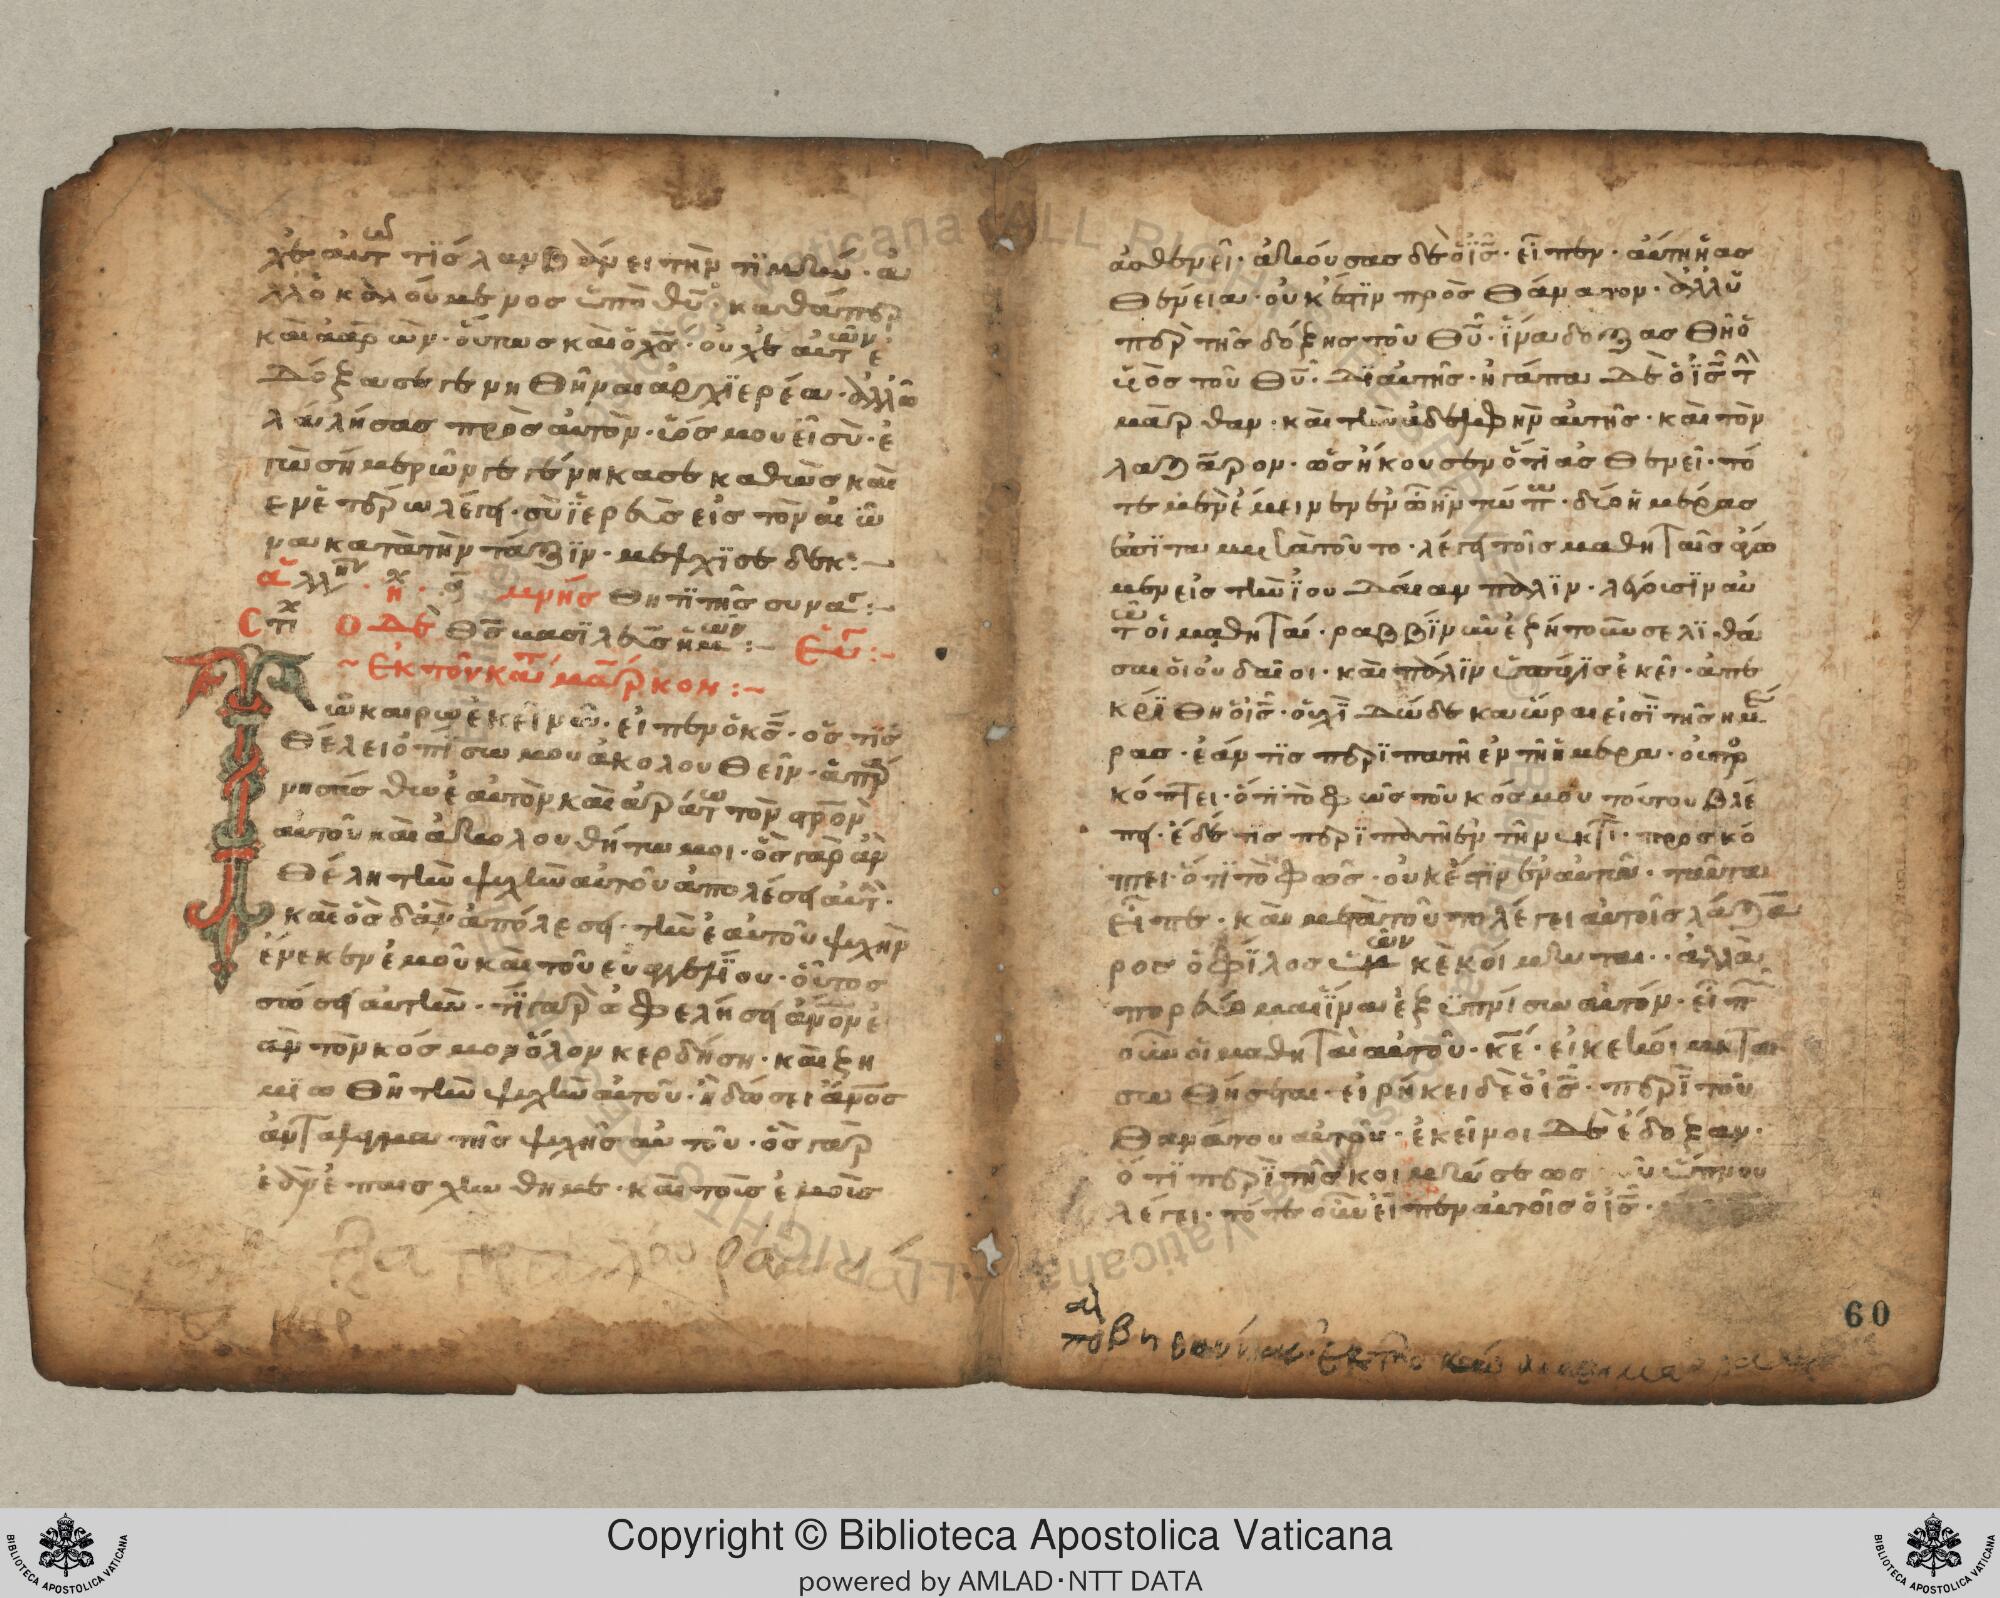 χὲ αὐτῶ τὶς λαμβάνει τὴν τιμήν· ἀ
λλ ὁ καλούμενος ὑπὸ θ̅υ̅· καθάπερ
καὶ ἀαρών· οὕτως καὶ ὁ χ̅ς̅· οὐχ ἑαυτὸν ἐ
δόξασε γενηθῆναι ἀρχϊερέα· ἀλλ ὁ
λαλήσας πρὸς αὐτὸν· υ̅ς̅ μου εἶ σὺ· ἐ
γὼ σήμερον γεγέννηκά σε καθὼς καὶ
ἐν ἑτέρω λέγει· σὺ ϊερεὺς εἰς τὸν αἰῶ
να κατὰ τὴν τάξϊν· μελχϊσεδέκ:~
θητὶ τῆς συνα:~
Στι Ὁ δὲ θ̅ς̅ βασϊλεὺς ἡμῶν:~
~ἐκ τοῦ κατὰ μάρκον:~
ῶ καιρῶ ἐκείνω· εἶπεν ὁ κ̅ς̅· ὅς τϊς
θέλει ὀπίσω μου ἀκολουθεῖν· ἀπαρ
νησάσθω ἑαυτὸν καὶ ἀράτω τὸν σ̅ρ̅ο̅ν
αὐτοῦ καὶ ἀκολουθήτω μοι· ὃς γὰρ ἂν
θέλη τὴν ψυχὴν αὐτοῦ ἀπολέσει αὐτὴν·
καὶ ὃς δ ἂν ἀπολέσει· τὴν ἑαυτοῦ ψυχὴν
ἕνεκεν ἐμοῦ καὶ τοῦ εὐαγγελϊου· οὗτος
σώσει αὐτὴν· τί γὰρ ὠφελήσει ἄνον ἐ
ὰν τὸν κόσμον ὅλον κερδήση· καὶ ζη
μϊωθῆ τὴν ψυχὴν αὐτοῦ· ἢ δώσει ἄνος
ἀντάλαγμα τῆς ψυχῆς αὐτοῦ· ὃς γὰρ
ἐὰν ἐπαισχυνθῆ με· καὶ τοὺς ἐμοὺς
ἀσθενεῖ· ἀκούσας δὲ ὁ ι̅ς̅· εἶπεν· αὕτη ἡ ἀσ
θένεια· οὐκ ἔστϊν πρὸς θάνατον· ἀλλ ὑ
περ τῆς δόξης τοῦ θ̅υ̅· ἵνα δοξασθῆ ὁ
υ̅ὸς τοῦ θ̅υ̅· δϊ αὐτῆς· ἠγάπα δὲ ὁ ι̅ς̅ τὴν
μάρθαν· καὶ τὴν ἀδελφὴν αὐτῆς· καὶ τὸν
λάζαρον· ὡς ἤκουσεν ὅτϊ ἀσθενεῖ· τό
τε μὲν ἔμεινεν ἐν ὧ ἦν τόπω· δύο ἡμέρας
ἔπϊτα μετὰ τοῦτο· λέγει τοῖς μαθηταῖς ἄγω
μεν εἰς τὴν ϊουδαίαν πάλϊν· λέγουσϊν αὐ
τῶ οἱ μαθηταί· ραββϊ νῦν ἐζήτουν σε λϊθά
σαι οἱ ϊουδαῖοι· καὶ πάλϊν ὑπάγεις ἐκεῖ· ἀπε
κρϊθη ὁ ι̅ς̅· οὐχϊ δώδεκα ὧραι εἰσϊ τῆς ἡμέ
ρας· ἐάν τϊς περϊπατῆ ἐν τῆ ἡμέρα· οὐ προσ
κόπτει· ὅτϊ τὸ φῶς τοῦ κόσμου τούτου βλέ
πει· ἐὰν δέ τϊς περϊπατῆ ἐν τῆ νυκτὶ· προσκό
πτει· ὅτϊ τὸ φῶς· οὐκ ἔστϊν ἐν αὐτῶ· ταῦτα
εἶπε· καὶ μετὰ τοῦτο λέγει αὐτοῖς λάζα
ρος ὁ φίλος ἡμῶν κεκοίμηται· ἀλλὰ
πορεύομαι ἵνα ἐξυπνίσω αὐτόν· εἶπον
οὖν οἱ μαθηταὶ αὐτοῦ· κ̅ε̅· εἰ κεκοίμηται
σωθήσεται· εἰρήκει δὲ ὁ ι̅ς̅· περϊ τοῦ
θανάτου αὐτοῦ· ἐκεῖνοι δὲ ἔδοξαν·
ὅτϊ περϊ τῆς κοιμήσεως τοῦ ὕπνου
λέγει· τότε οὖν εἶπεν αὐτοῖς ὁ ι̅ς̅·
60
Copyright © Biblioteca Apostolica Vaticana
powered by AMLAD·NTT DATA